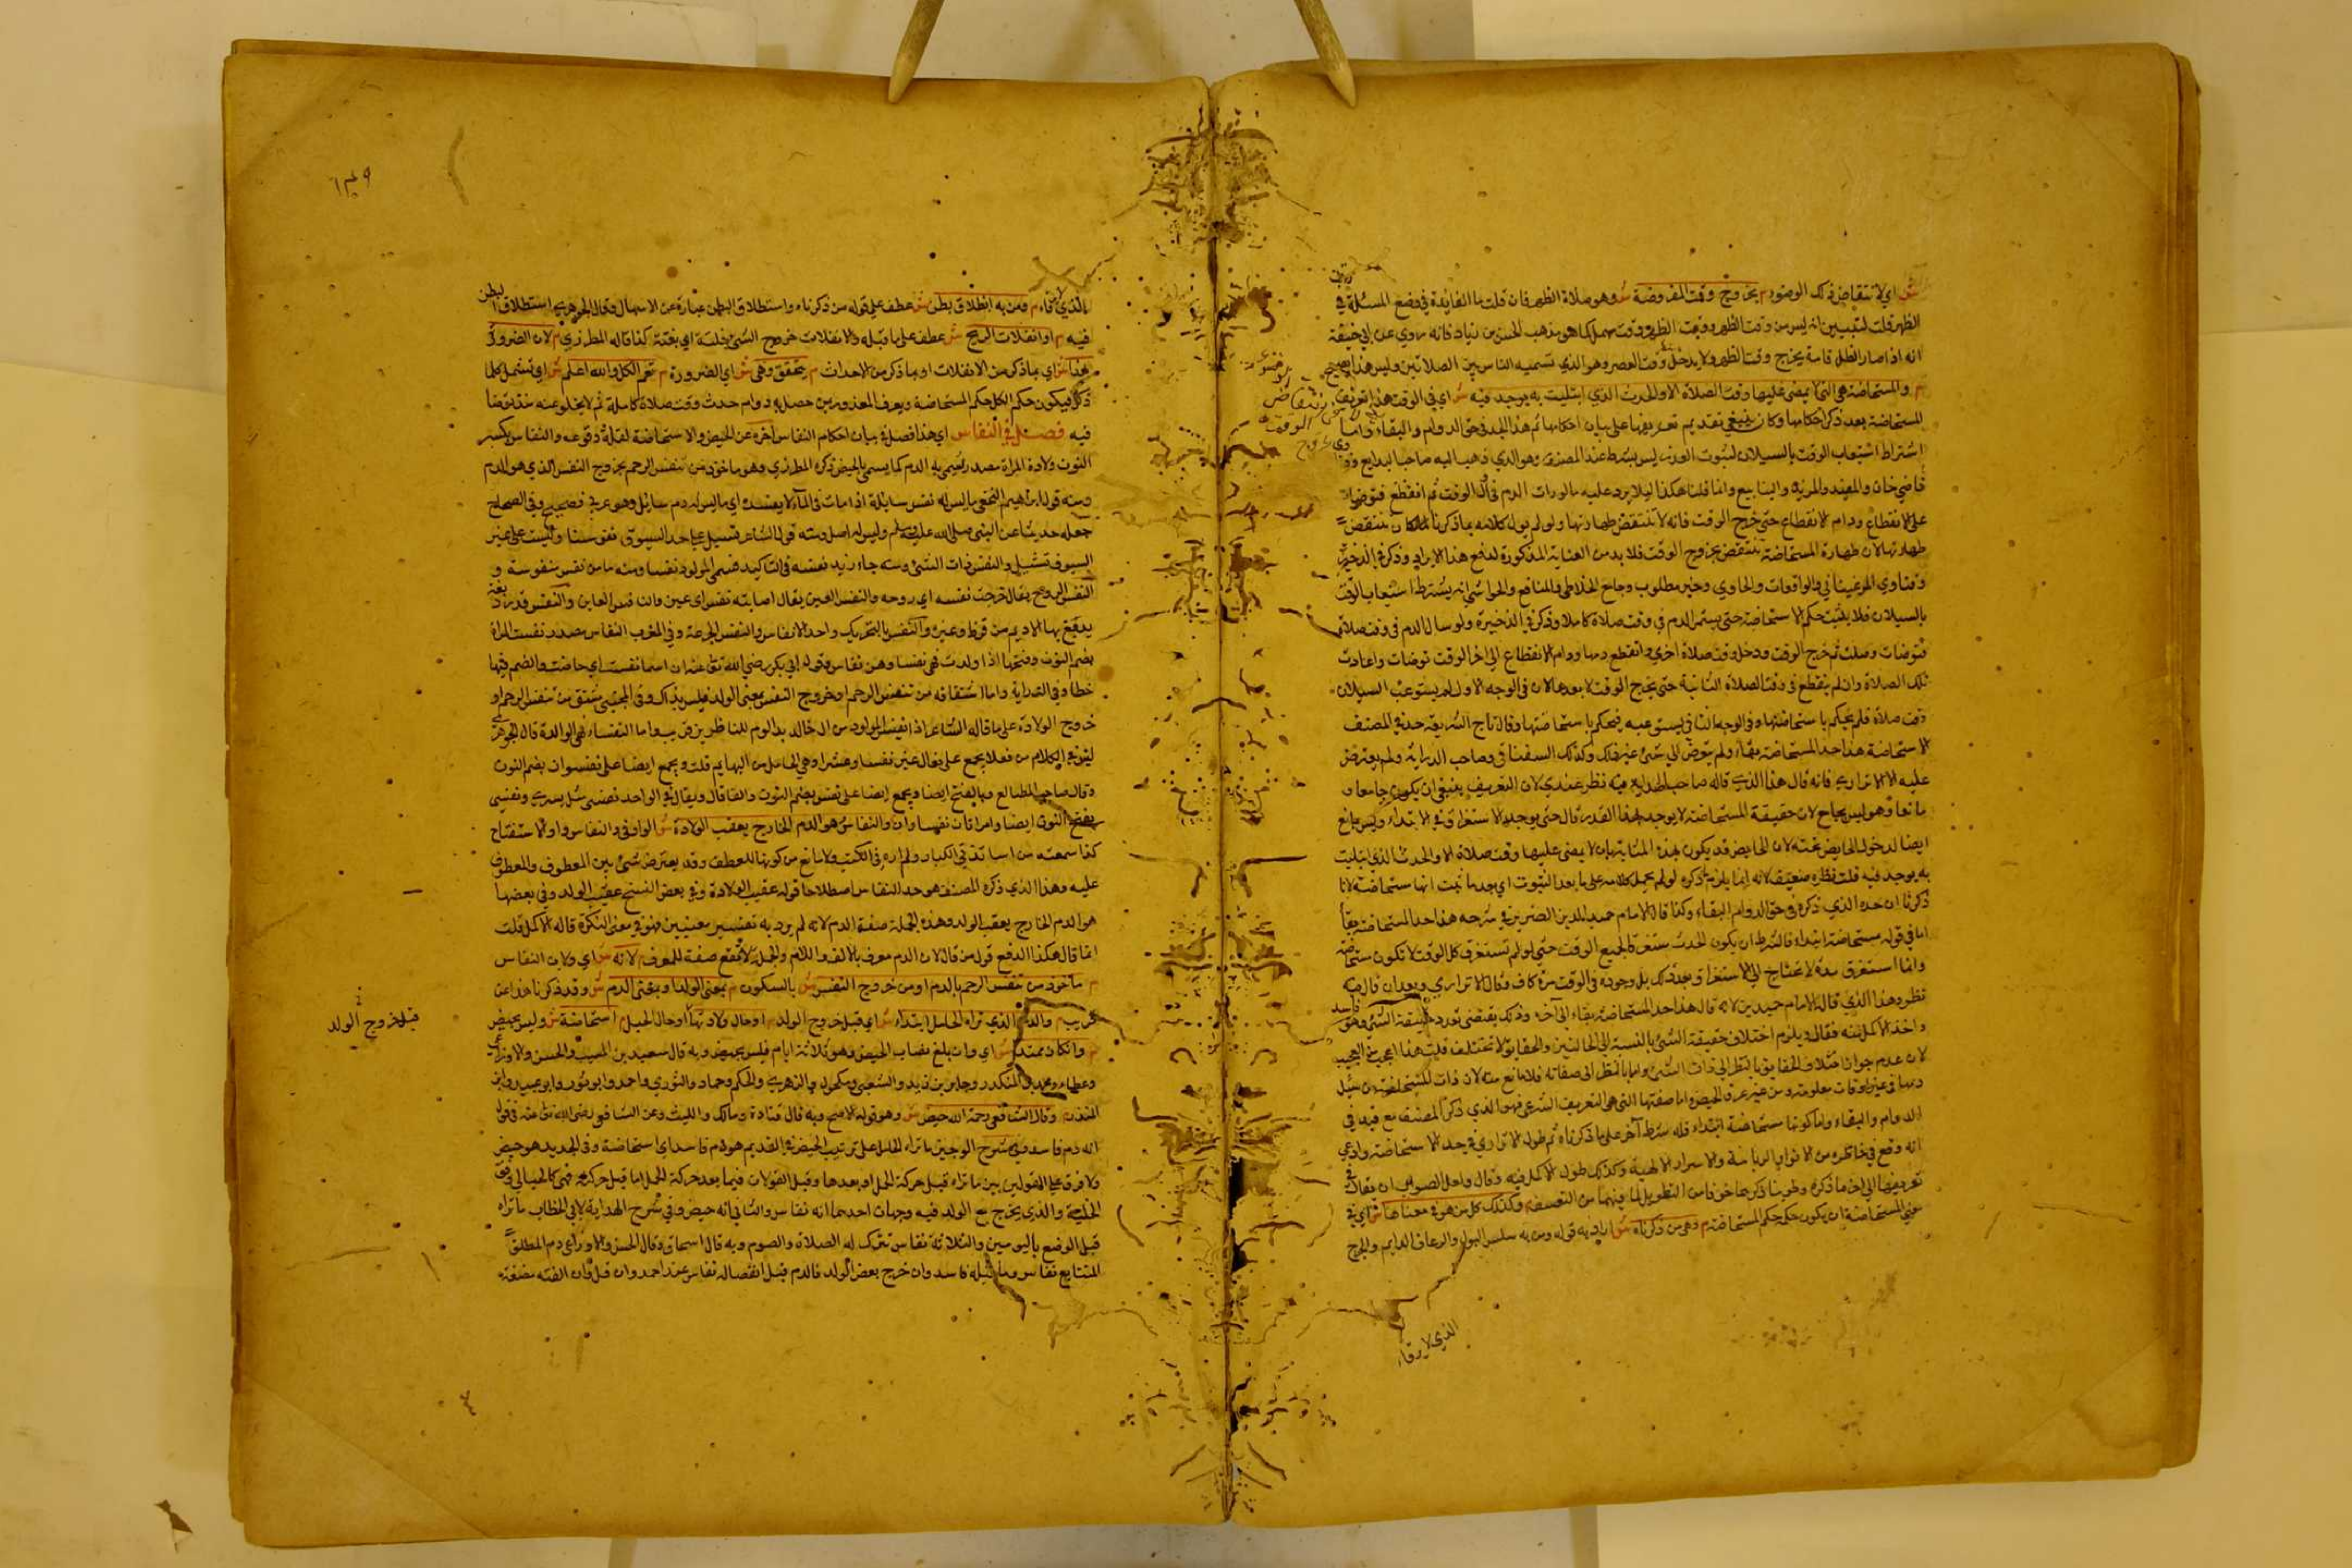 ش اي لانتقاض ذلك الوضوء م بخروج وقت المفروضة ش وهو صلاة الظهر فان قلت ما الفايدة في وضع المسئلة في
الظهر قلت ليتبين انه ليس من وقت الظهر ووقت وقت مهمل كما هو مذهب الحسن بن زياد فانه روي عن ابي حنيفة
انه اذا صار الظل قامة يخرج وقت الظهر ولا يدخل وقت العصر وهو الذي تسميه الناس بين الصلاتين وليس هذا بصحيح
م والمستحاضة هي التي لا يمضي عليها وقت الصلاة الا والحدث الذي ابتليت به يوجد فيه ش اي في الوقت هذا تعريف
المستحاضة بعد ذكر احكامها وكان ينبغي تقديم تعريفها على بيان احكامها ثم هذا الحد في حق الدوام والبقاء واما
اشتراط استيعاب الوقت بالسيلان لثبوت العذر ليس بشرط عند المصنف وهو الذي ذهب اليه صاحب البدايع و
قاضي خان والمفيد والمزيد والينابيع وانما قلنا هكذا ليلا يرد عليه ما لو رات الدم في اول الوقت ثم انقطع فتوضات
على الانقطاع ودام الانقطاع حتى خرج الوقت فانه لا تنتقض طهارتها ولو لم يول كلامه بما ذكرنا لكان تنتقض
طهارتها لان طهارة المستحاضة تنتقض بخروج الوقت فلا بد من العناية المذكورة لدفع هذا الايراد وذكر في الذخيرة
وفتاوي المرغيناني والواقعات والحاوي وخير مطلوب وجامع الخلاطي والمنافع والحواشي انه يشترط استيعاب الوقت
بالسيلان فلا يثبت حكم الاستحاضة حتى يستمر الدم في وقت صلاة كاملا وذكر في الذخيرة ولو سال الدم في وقت صلاة
فتوضات وصلت ثم خرج الوقت ودخل وقت صلاة اخري وانقطع دمها ودام الانقطاع الي اخر الوقت توضات واعادت
تلك الصلاة وان لم ينقطع في وقت الصلاة الثانية حتى يخرج الوقت لا يعيدها لان في الوجه الاول لم يستوعب السيلان
وقت صلاة فلم يحكم باستحاضتها وفي الوجه الثاني يستوعبه فيحكم باستحاضتها وقال تاج الشريعة حد المصنف
الاستحاضة هذا حد المستحاضة بقاء ولم يتعرض الي شئ غير ذلك وكذلك السغناقي وصاحب الدراية ولم يعترض
عليه الا الاتراري فانه قال هذا الذي قاله صاحب الهداية فيه نظر عندي لان التعريف ينبغي ان يكون جامعا و
مانعا وهو ليس بجامع لان حقيقة المستحاضة لا يوجد بهذا القدر قال حتى يوجد الاستغراق في الابتداء وليس بمانع
ايضا لدخول الحايض تحته لان الحايض قد يكون بهذه المثابة بان لا يمضي عليها وقت صلاة الا والحدث الذي ابتليت
به يوجد فيه قلت نظره ضعيف لانه انما يلزم ما ذكره لو لم يحمل كلامه على ما بعد الثبوت اي بعد ما ثبت انها مستحاضة لانا
ذكرنا ان حده الذي ذكره في حق الدوام والبقاء وكذا قال الامام حميد الدين الضرير في شرحه هذا حد المستحاضة بقاء
اما في قوله مستحاضة ابتداء فالشرط ان يكون الحدث مستغرقا لجميع الوقت حتى لو لم تستغرق كل الوقت لا تكون مستحاضة
واذا استغرق مرة لا تحتاج الي الاستغراق بعد ذلك بل وجوده في الوقت مرة كاف وقال الاتراري وبعد ان قال فيه
نظر وهذا الذي قال الامام حميد الدين لانه قال هذا حد المستحاضة بقاء الي اخره وذلك يقتضي تورد حقيقة الشئ وهو فاسد
واخذ الاكمل منه فقال ويلزم اختلاف حقيقة الشئ بالنسبة الي الحالتين والحقايق لا تختلف قلت هذا اعجب من العجيب
لان عدم جواز اختلاف الحقايق بالنظر الي ذات الشئ واما بالنظر الي صفاته فلا مانع منه لان ذات المستحاضة من يسيل
دمها في غير اوقات معلومة ومن غير عرق الحيض واما صفتها التي هي التعريف الشرعي فهو الذي ذكره المصنف مع قيد في
الدوام والبقاء واما كونها مستحاضة ابتداء فله شرط آخر على ما ذكرناه ثم طول الاتراري في حد الاستحاضة وادعي
انه وقع في خاطره من الانوار الربانية والاسرار الالهية وكذلك طول الاكمل فيه وقال واصل الصواب ان يقال في
تعريفها الي اخر ما ذكره وطوينا ذكرهما خوفا من التطويل لما فيهما من التعسف م وكذلك كل من هو في معناها ش اي في
معنى المستحاضة ان يكون حكمه حكم المستحاضة م وهو من ذكرناه ش اراد به قوله ومن به سلس البول والرعاف الدايم والجرح
الذي لا يرقاء
١٣٩
الذي لا يرقاء م ومن به انطلاق بطن ش عطف على قوله من ذكرناه واستطلاق البطن عبارة عن الاسهال وقال الجوهري استطلاق البطن
فيه م او انفلات الريح ش عطف على ما قبله والانفلات خروج الشئ فلتة اي بغتة كذا قاله المطرزي م لان الضرورة
بهذا ش اي بما ذكر من الانفلات او بما ذكر من الاحداث م يتحقق وهي ش اي الضرورة م تعم الكل والله اعلم ش اي تشمل كلما
ذكر فيكون حكم الكل حكم المستحاضة ويعرف المعذور بمن حصل به دوام حدث وقت صلاة كاملة ثم لا يخلو عنه
فيه فصل في النفاس اي هذا فصل في بيان احكام النفاس اخره عن الحيض والاستحاضة لقلة وقوعه والنفاس بكسر
النون ولادة المراة مصدر سمي به الدم كما يسمي بالحيض ذكره المطرزي وهو ماخوذ من تنفس الرحم بخروج النفس الذي هو الدم
ومنه قول ابراهيم النخعي ما ليس له نفس سايلة اذا مات في الماء لا يفسده اي ما ليس له دم سائل وهو عربي فصيح وفي الصحاح
جعله حديثا عن النبي صلى الله عليه وسلم وليس له اصل ومنه قول الشاعر تسيل على حد السيوف نفوسنا وليست على غير
السيوف تسيل والنفس ذات الشئ ومنه جاء زيد نفسه في التاكيد فسمي المولود نفسا ومنه ما من نفس منفوسة و
النفس الروح يقال خرجت نفسه اي روحه والنفس العين يقال اصابته نفس اي عين والنفس قدر دبغة
يدبغ بها الاديم من قرظ وغيره والنفس بالتحريك واحد الانفاس والنفس الجرعة وفي المغرب النفاس مصدر نفست المراة
بضم النون وفتحها اذا ولدت فهي نفسا وهن نفاس وقول ابي بكر رضي الله تعالى عنه ان اسما نفست اي حاضت والضم فيها
خطا وفي الدراية واما اشتقاقه من تنفس الرحم او خروج النفس بمعنى الولد فليس بذاك وفي المجتبى مشتق من تنفس الرحم او
خروج الولادة على ما قاله الشاعر اذا نفس المولود من ال خالد بدا لوم للناظرين قريب واما النفساء فهي الوالدة قال الجوهري
ليس في الكلام من فعلا يجمع على فعال غير نفسا وعشرا وهي الحامل من البهايم قلت ويجمع ايضا على نفساوات بضم النون
وقال صاحب المطالع وبالفتح ايضا ويجمع ايضا على نفس بضم النون والفا قال ويقال في الواحد نفسى مثل بسرى ونفسى
بفتح النون ايضا وامراتان نفساوان والنفاس هو الدم الخارج يعقب الولادة ش الواو في والنفاس واو الاستفتاح
كذا سمعته من اساتذتي الكبار ولم اره في الكتب ولا مانع من كونها للعطف وقد يعترض شئ بين المعطوف والمعطوف
عليه وهذا الذي ذكره المصنف هو حد النفاس اصطلاحا قوله عقيب الولادة وفي بعض النسخ عقيب الولد وفي بعضها
هو الدم الخارج يعقب الولد وهذه الجملة صفة الدم لانه لم يرد به تفسير معينين فهو في معنى النكرة قاله الاكمل قلت
انما قال هكذا لدفع قول من قال لان الدم معرف بالالف واللام والجملة لا تقع صفة للمعرف م لانه ش اي ولان النفاس
م ماخوذ من تنفس الرحم بالدم او من خروج النفس ش بالسكون م بمعنى الولد او بمعنى الدم ش وقد ذكرنا هذا عن
قريب م والدم الذي تراه الحامل ابتداء ش اي قبل خروج الولد م او حال ولادتها او حال الحبل م استحاضة ش وليس بحيض
م وان كان ممتدا ش اي وان بلغ نصاب الحيض وهو ثلاثة ايام فليس بحيض وبه قال سعيد بن المسيب والحسن والاوزاعي
وعطاء ومحمد بن المنكدر وجابر بن زيد والشعبي ومكحول والزهري والحكم وحماد والثوري واحمد وابو ثور وابو عبيد وابن
المنذر م وقال الشافعي رحمه الله حيض ش وهو قوله الاصح وبه قال قتادة ومالك والليث وعن الشافعي رضي الله تعالى عنه في قول
انه دم فاسد وفي شرح الوجيز ما تراه الحامل على ترتيب الحيض في القديم هو دم فاسد اي استحاضة وفي الجديد هو حيض
ولا فرق على القولين بين ما تراه قبل حركة الحمل او بعدها وقيل القولان فيما بعد حركة الحمل اما قبل حركته فهي كالحيالى في حق
والذي يخرج مع الولد فيه وجهان احدهما انه نفاس والثاني انه حيض وفي شرح الهداية لابي الخطاب ما تراه
قبل الوضع باليومين والثلاثة نفاس تترك له الصلاة والصوم وبه قال اسحاق وقال الحسن والاوزاعي دم المطلق
المتتابع نفاس وما قبله فاسد وان خرج بعض الولد فالدم قبل انفصاله نفاس عند احمد وان قل وان القته مضغة
قبل خروج الولد